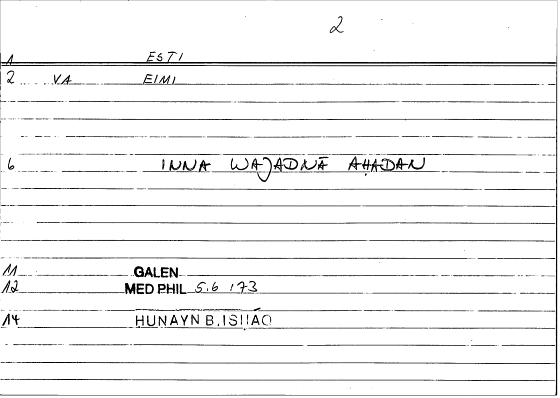 2
1 ESTI
2 VA EIMI
6 INNA WAJADNĀ AḤADAN
11 GALEN
12 MED PHIL 5.6 173
14 HUNAYN B. ISḤĀQ